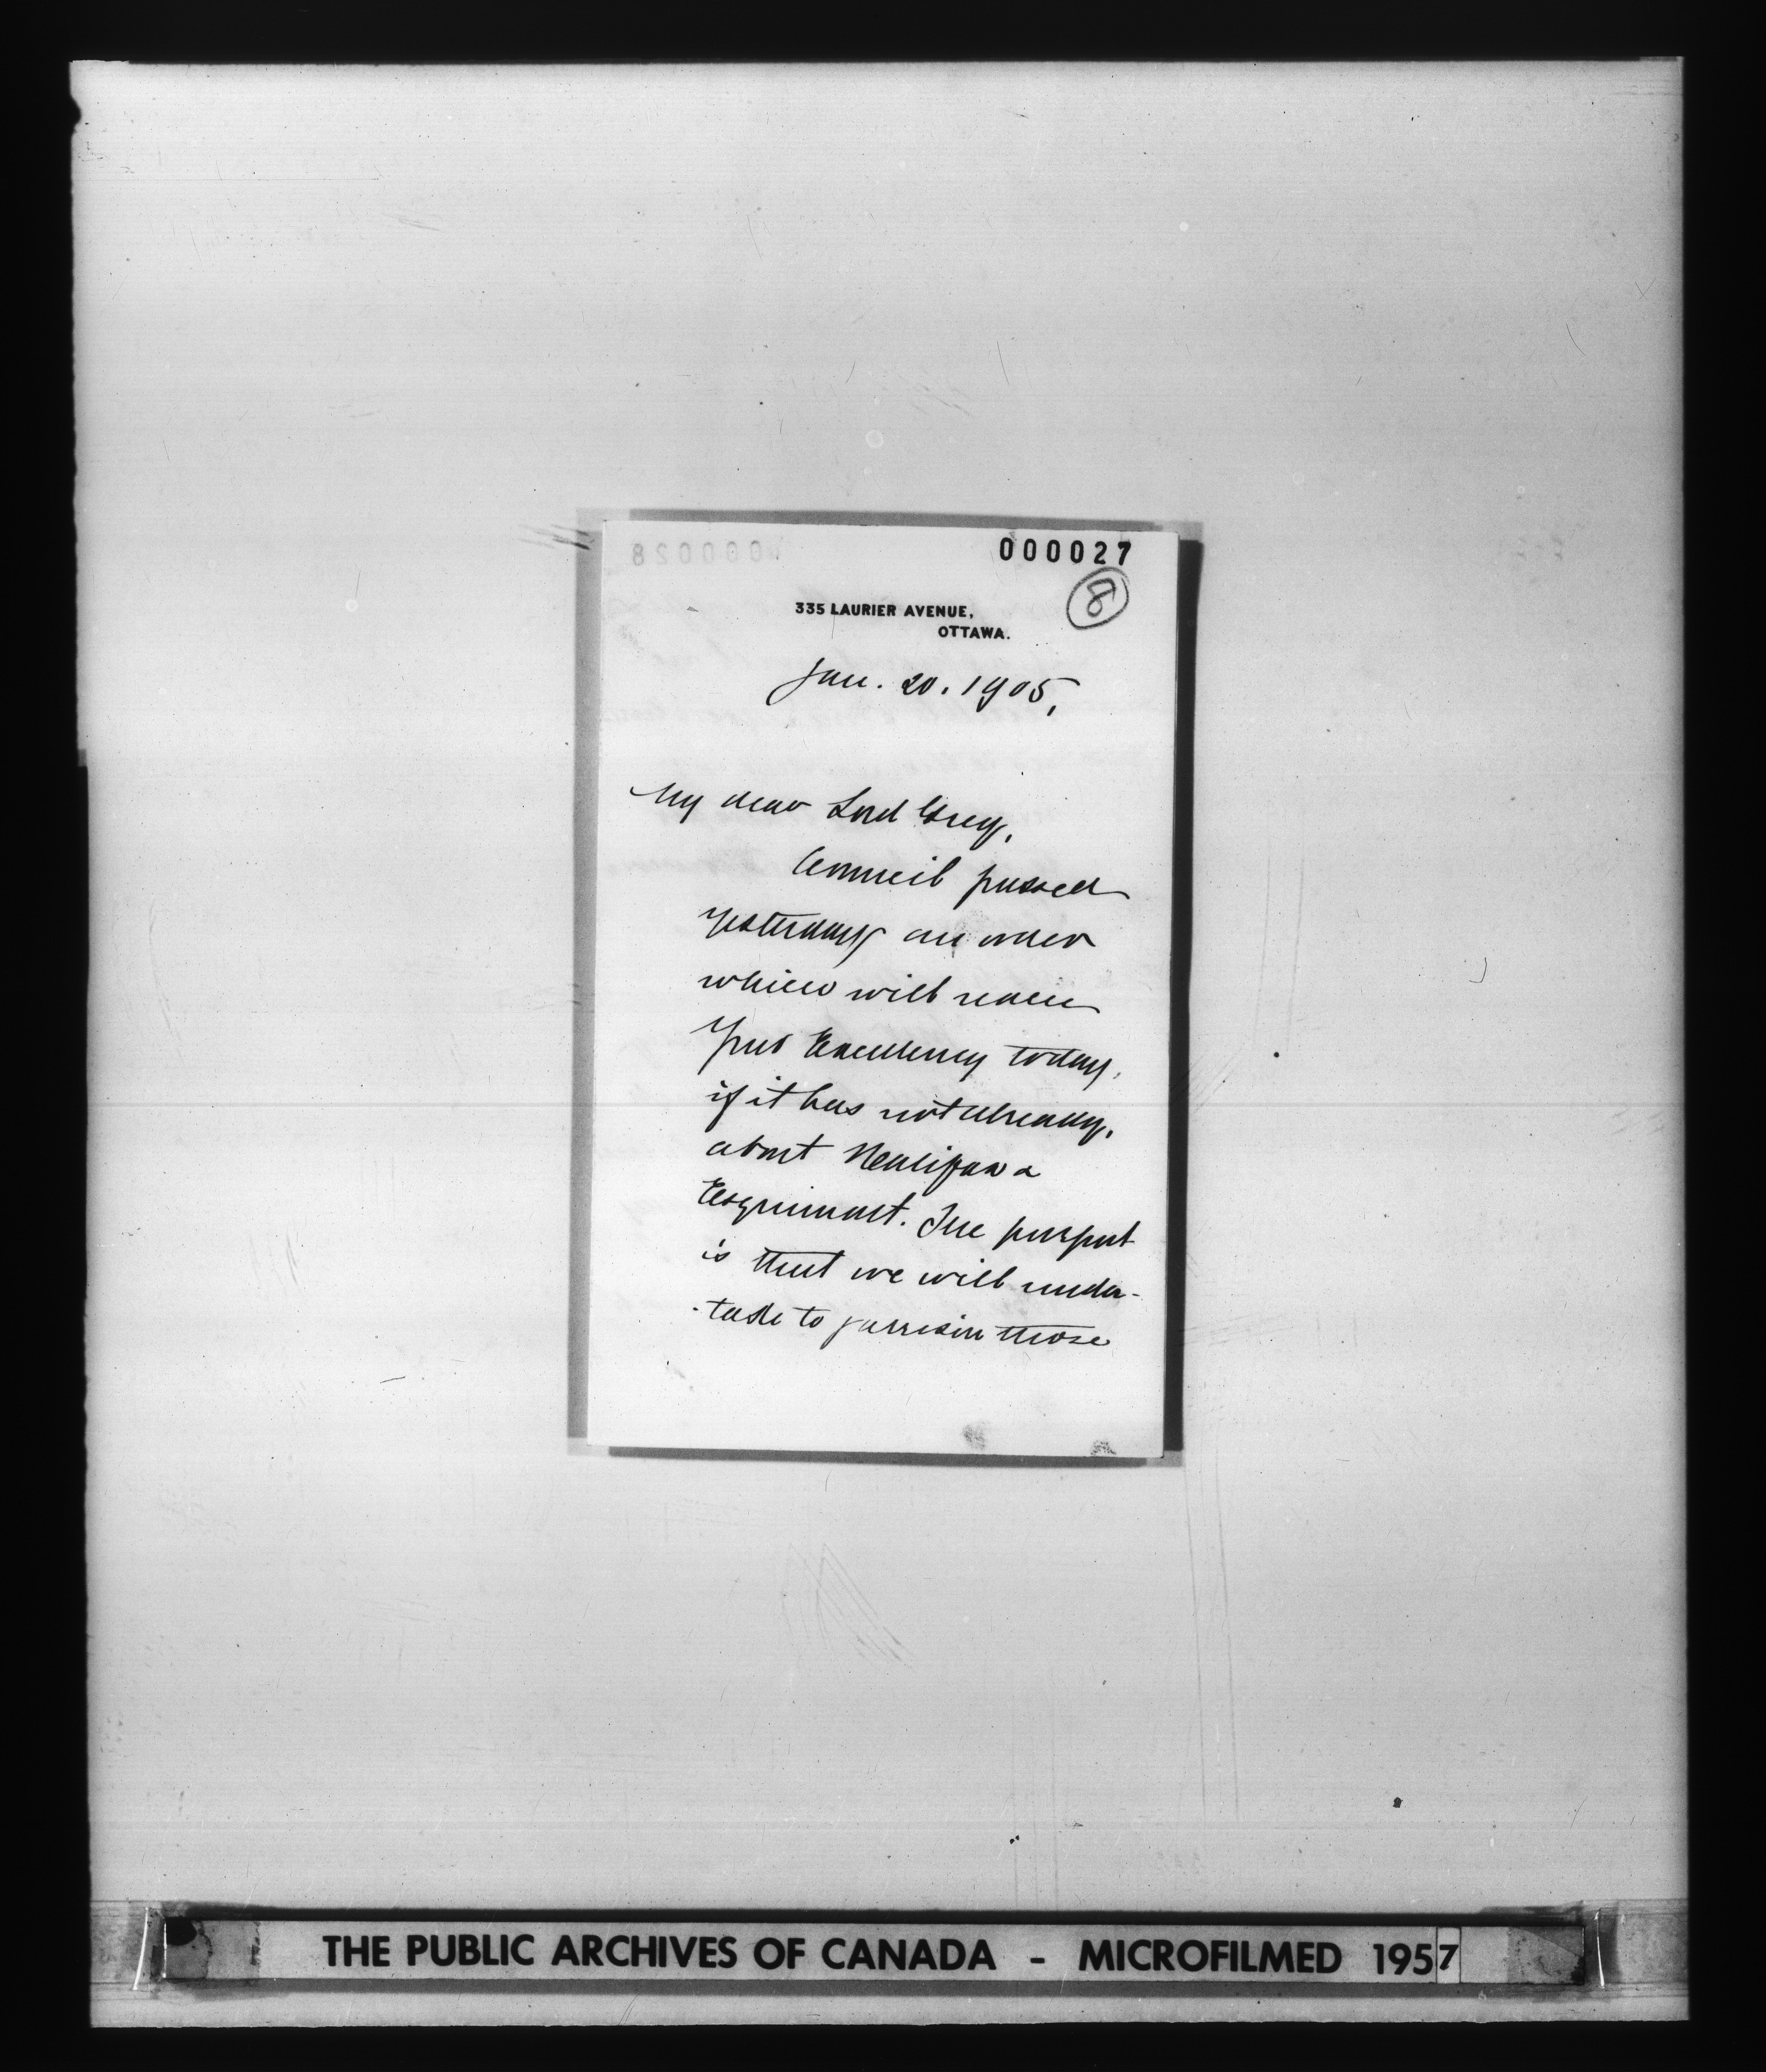 000027
8
335 LAURIER AVENUE,
OTTAWA.
Jan. 20. 1905,
My dear Lord Grey,
Council passed
yesterday an order
which will reach
Your Excellency today,
if it has not already,
about Halifax &
Esquimalt. The purport
is that we will under-
-take to garrison those
THE PUBLIC ARCHIVES OF CANADA - MICROFILMED 1957